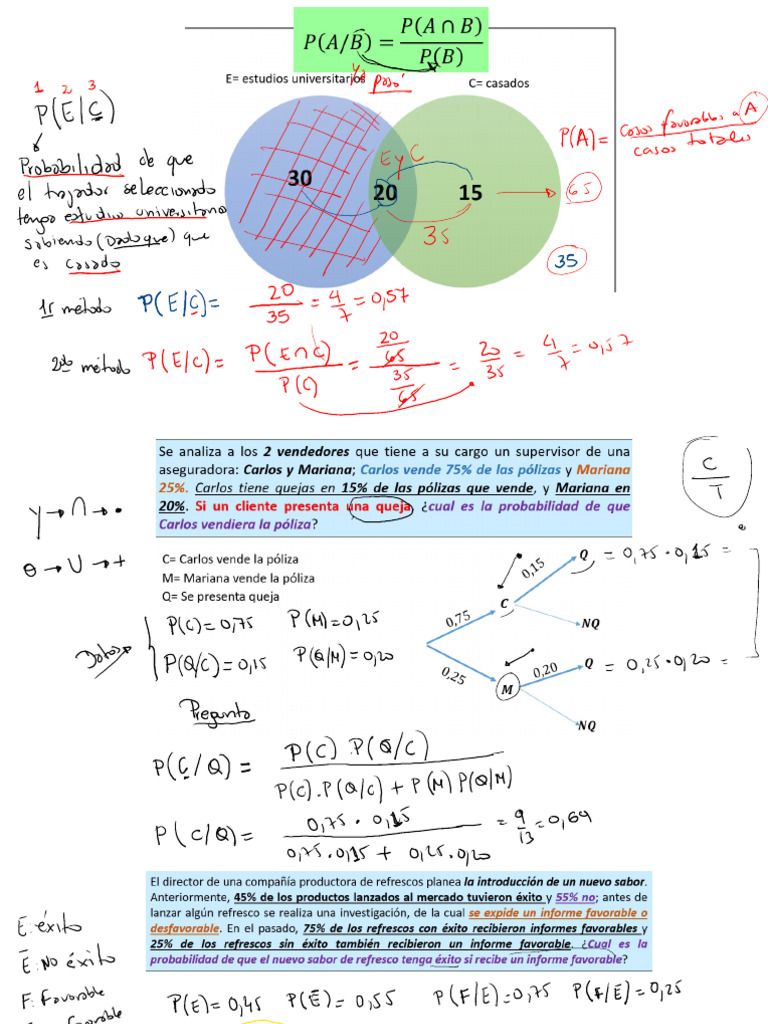 P(A/B) = P(A ∩ B) / P(B)
Ya pasó
E= estudios universitarios
C= casados
1 2 3
P(E/C)
Probabilidad de que
el trajador seleccionado
tenga estudio universitario
sabiendo (Dado que) que
es casado
30
E y C
20
15
35
P(A) = casos favorables a A / casos totales
65
35
1r método P(E/C) = 20/35 = 4/7 = 0,57
2do método P(E/C) = P(E∩C) / P(C) = 20/65 / 35/65 = 20/35 = 4/7 = 0,57
Se analiza a los 2 vendedores que tiene a su cargo un supervisor de una
aseguradora: Carlos y Mariana; Carlos vende 75% de las pólizas y Mariana
25%. Carlos tiene quejas en 15% de las pólizas que vende, y Mariana en
20%. Si un cliente presenta una queja, ¿cual es la probabilidad de que
Carlos vendiera la póliza?
C/T
y → ∩ → •
o → U → +
C= Carlos vende la póliza
M= Mariana vende la póliza
Q= Se presenta queja
0,75
C
0,15
Q = 0,75 · 0,15 =
NQ
0,25
M
0,20
Q = 0,25 · 0,20 =
NQ
Datos
P(C)=0,75 P(M)=0,25
P(Q/C)=0,15 P(Q/M)=0,20
Pregunta
P(C/Q) = P(C) · P(Q/C) / P(C) · P(Q/C) + P(M) P(Q/M)
P(C/Q) = 0,75 · 0,15 / 0,75 · 0,15 + 0,25 · 0,20 = 9/13 = 0,69
El director de una compañía productora de refrescos planea la introducción de un nuevo sabor.
Anteriormente, 45% de los productos lanzados al mercado tuvieron éxito y 55% no; antes de
lanzar algún refresco se realiza una investigación, de la cual se expide un informe favorable o
desfavorable. En el pasado, 75% de los refrescos con éxito recibieron informes favorables y
25% de los refrescos sin éxito también recibieron un informe favorable. ¿Cual es la
probabilidad de que el nuevo sabor de refresco tenga éxito si recibe un informe favorable?
E: éxito
Ē: No éxito
F: Favorable
P(E)=0,45 P(Ē)=0,55 P(F/E)=0,75 P(F/Ē)=0,25